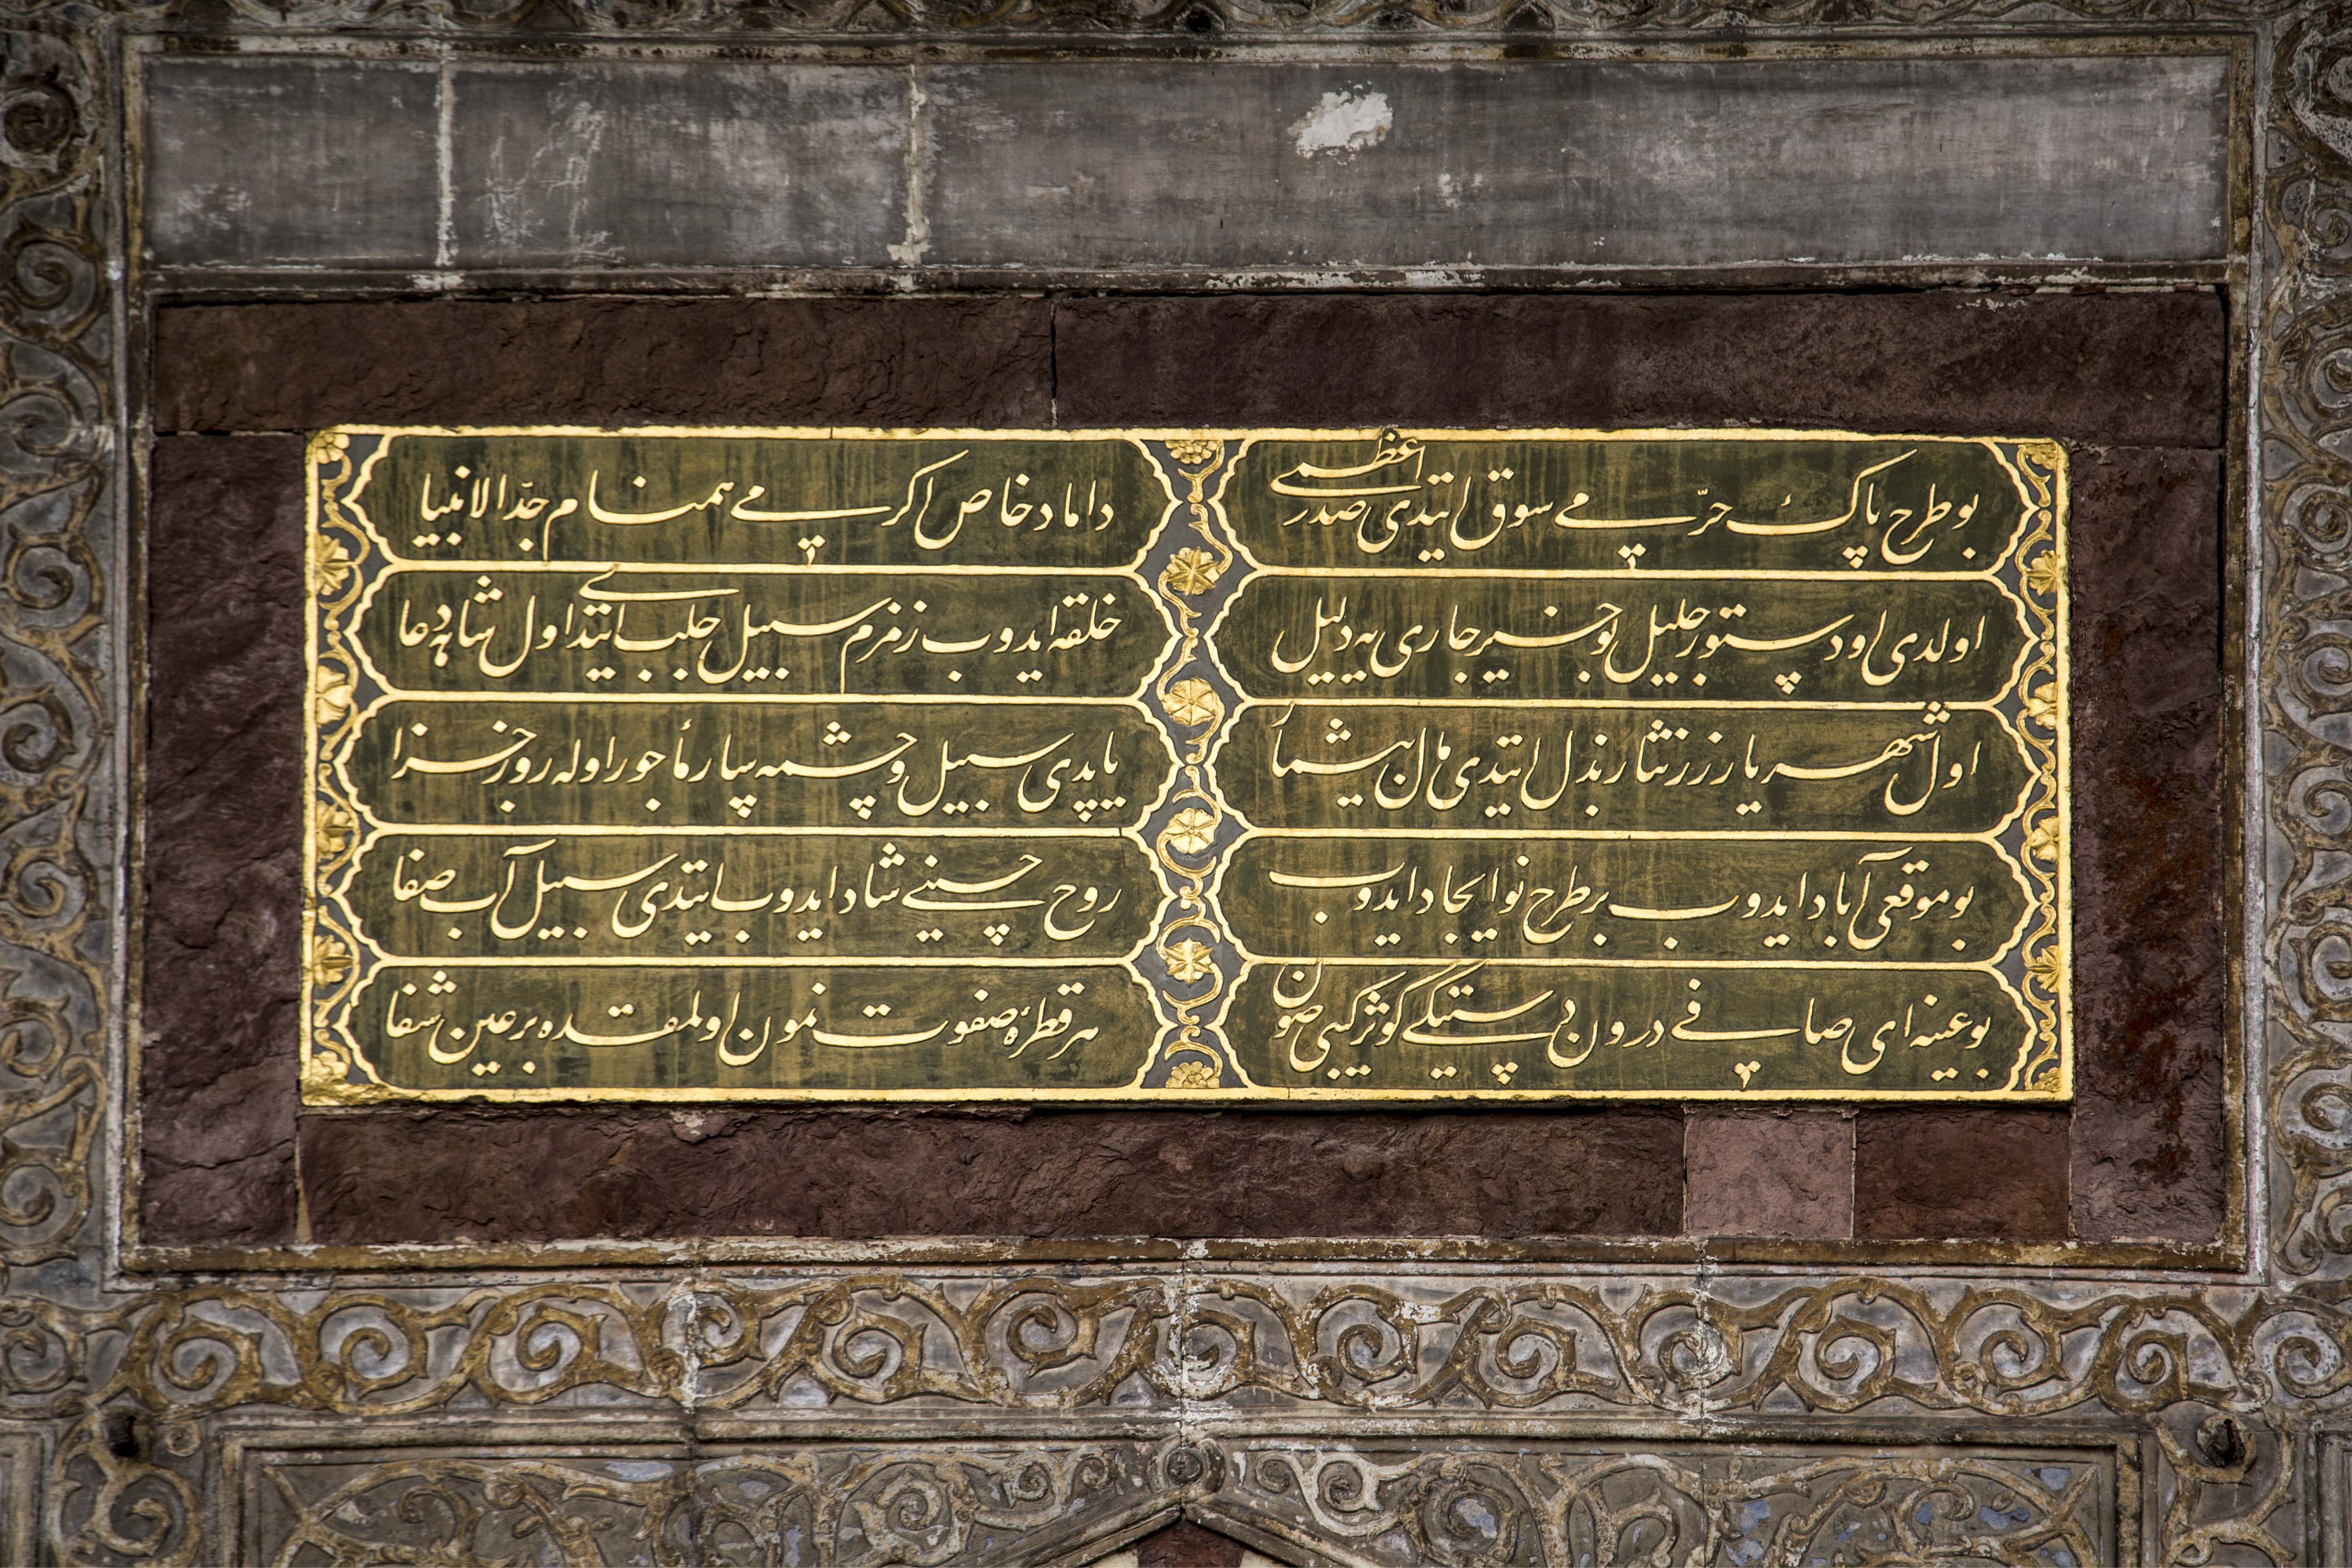 بو طرح پاك حرمی سوق ایتدی صدر اعظمی
داماد خاص اکرمی همنام جدّ الانبیا
اولدی او دستور جلیل بو خیر جاری یه دلیل
خلقه ایدوب زمزم سبیل جلب ایتدی اول شاهه دعا
اول شهریار زر نثار بذل ایتدی مال بیشمار
یاپدی سبیل و چشمه سار مأجور اوله روز جزا
بو موقعی آباد ایدوب بر طرح نو ایجاد ایدوب
روح حسینی شاد ایدوب ایتدی سبیل آب صفا
بو عینه ای صافی درون دستڭله کوثر کبی صون
هر قطرهٔ صفوت نمون اولمقده بر عین شفا